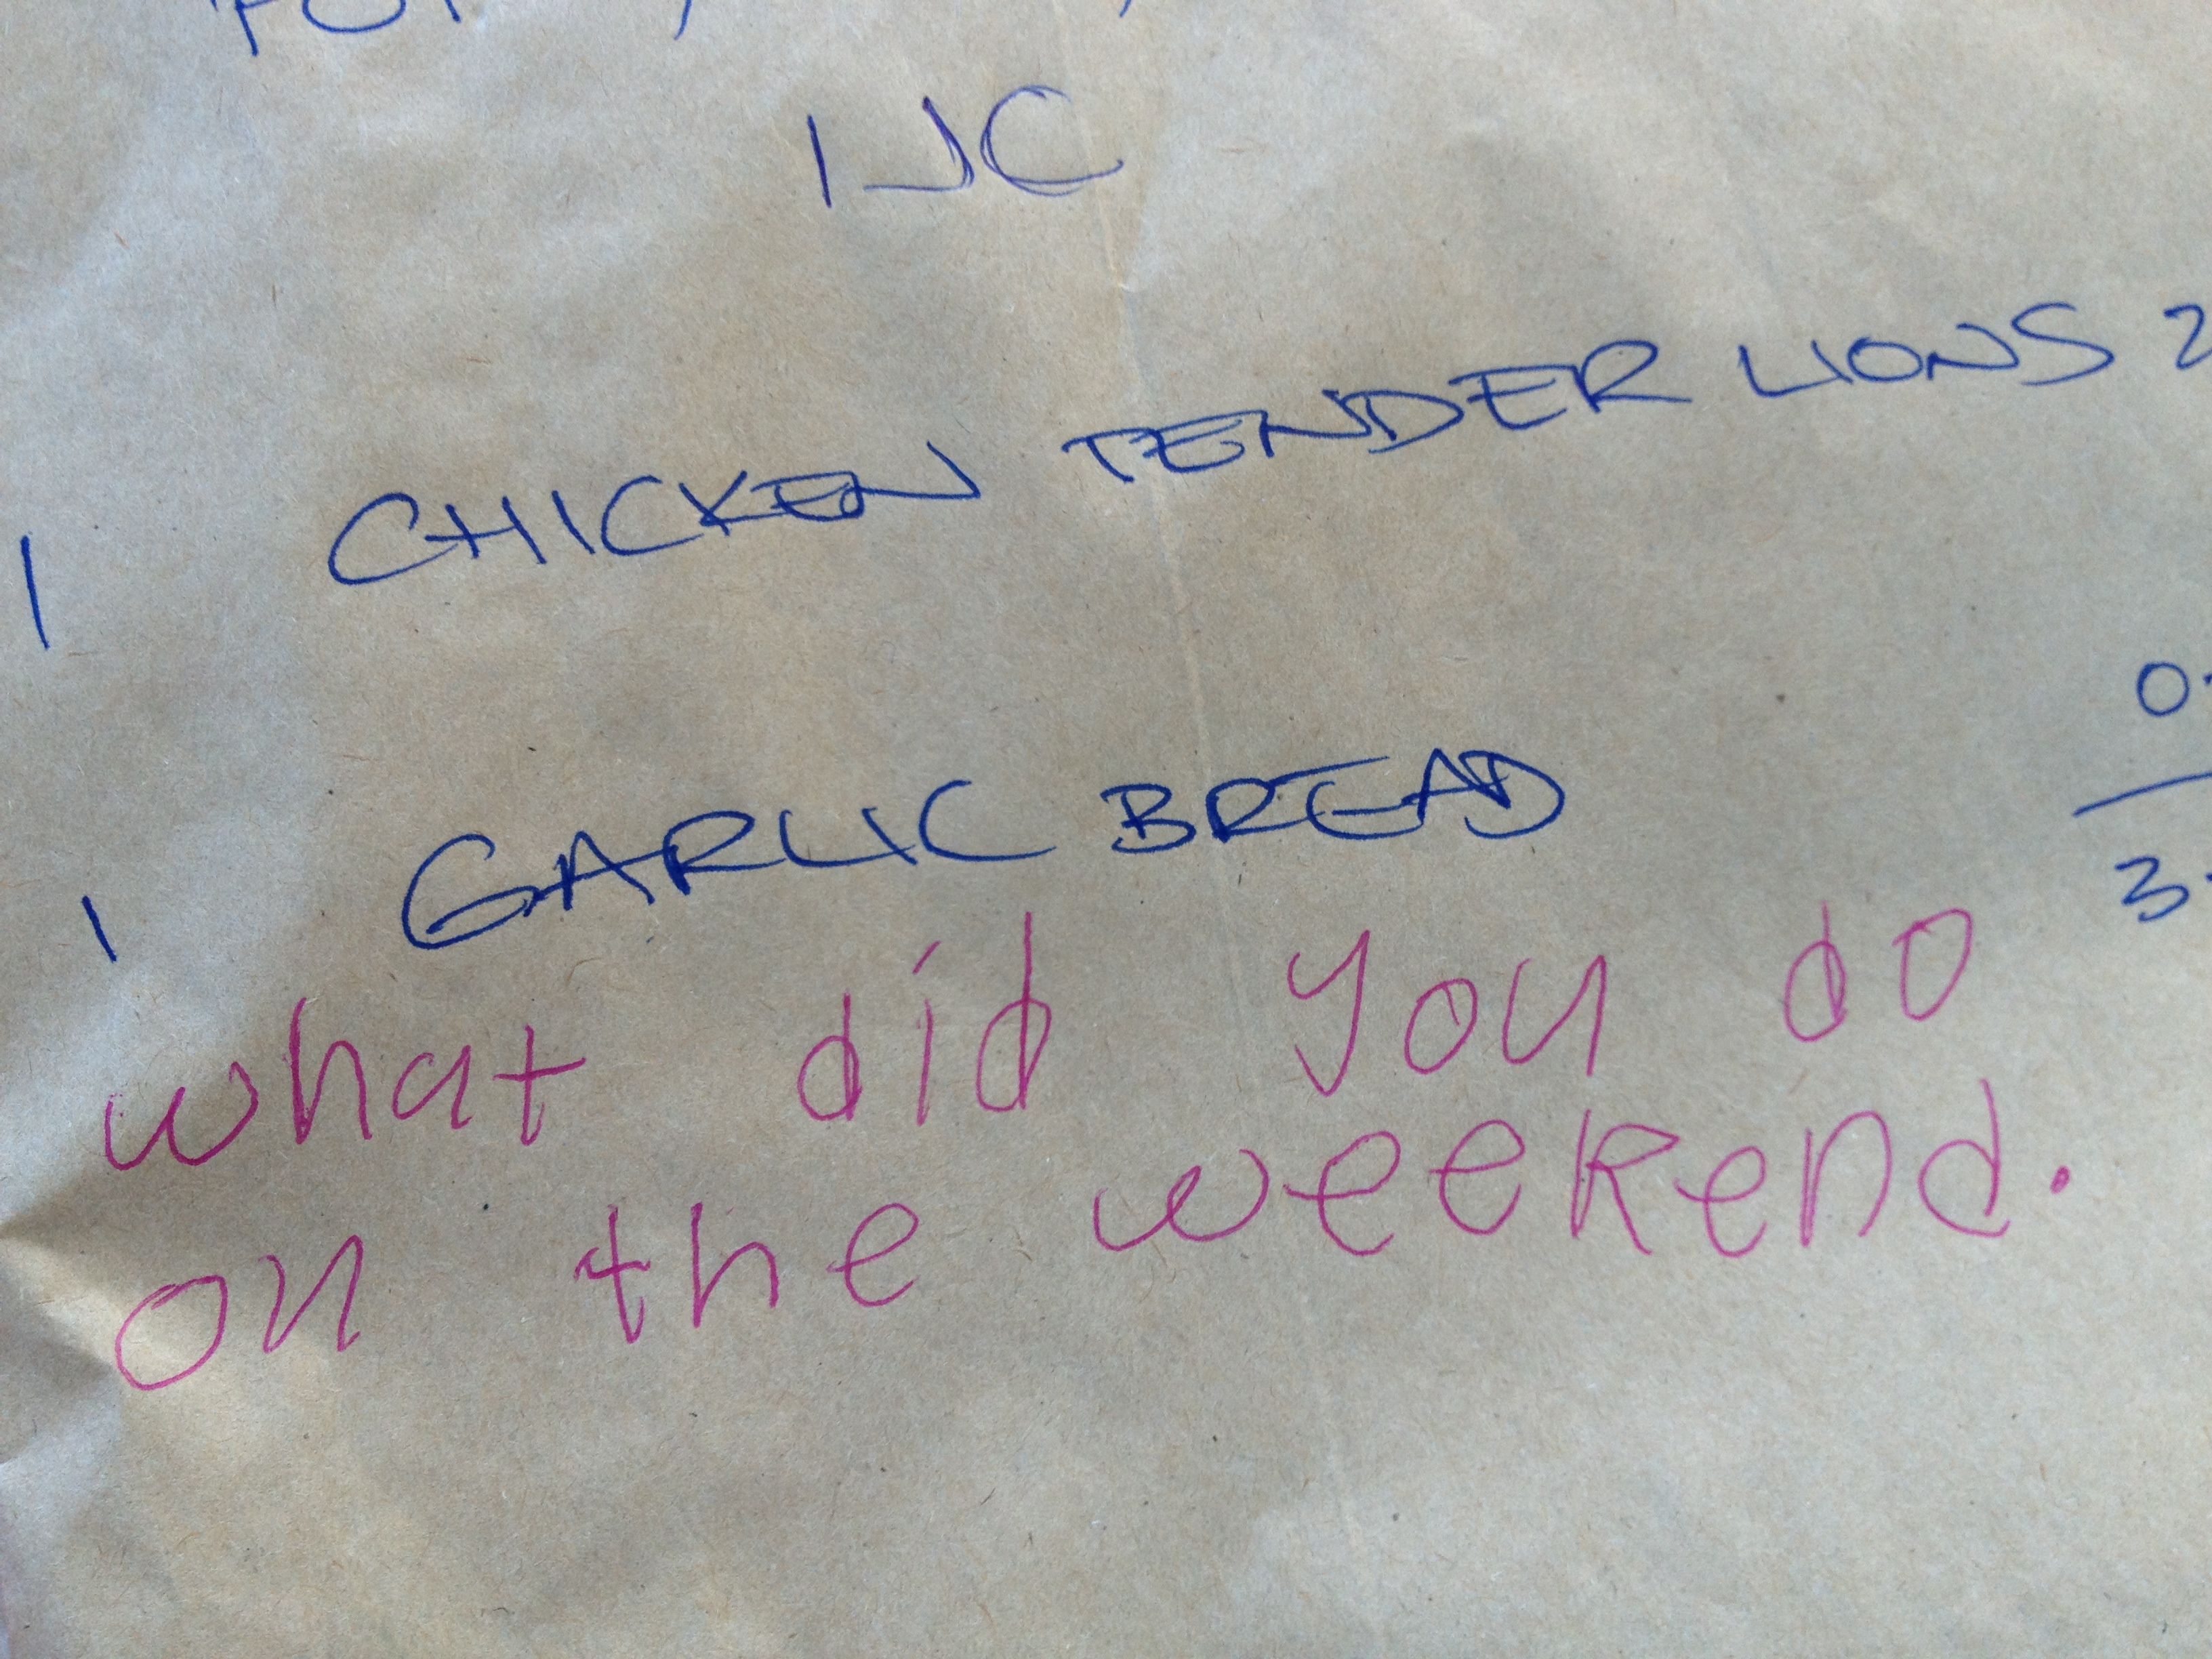 1JC
1 CHICKEN TENDER LIONS 2
0.
1 GARLIC BREAD
3.
what did you do
on the weekend.